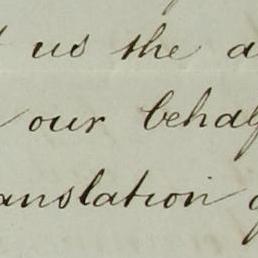 us the a
our behalf
anslation o